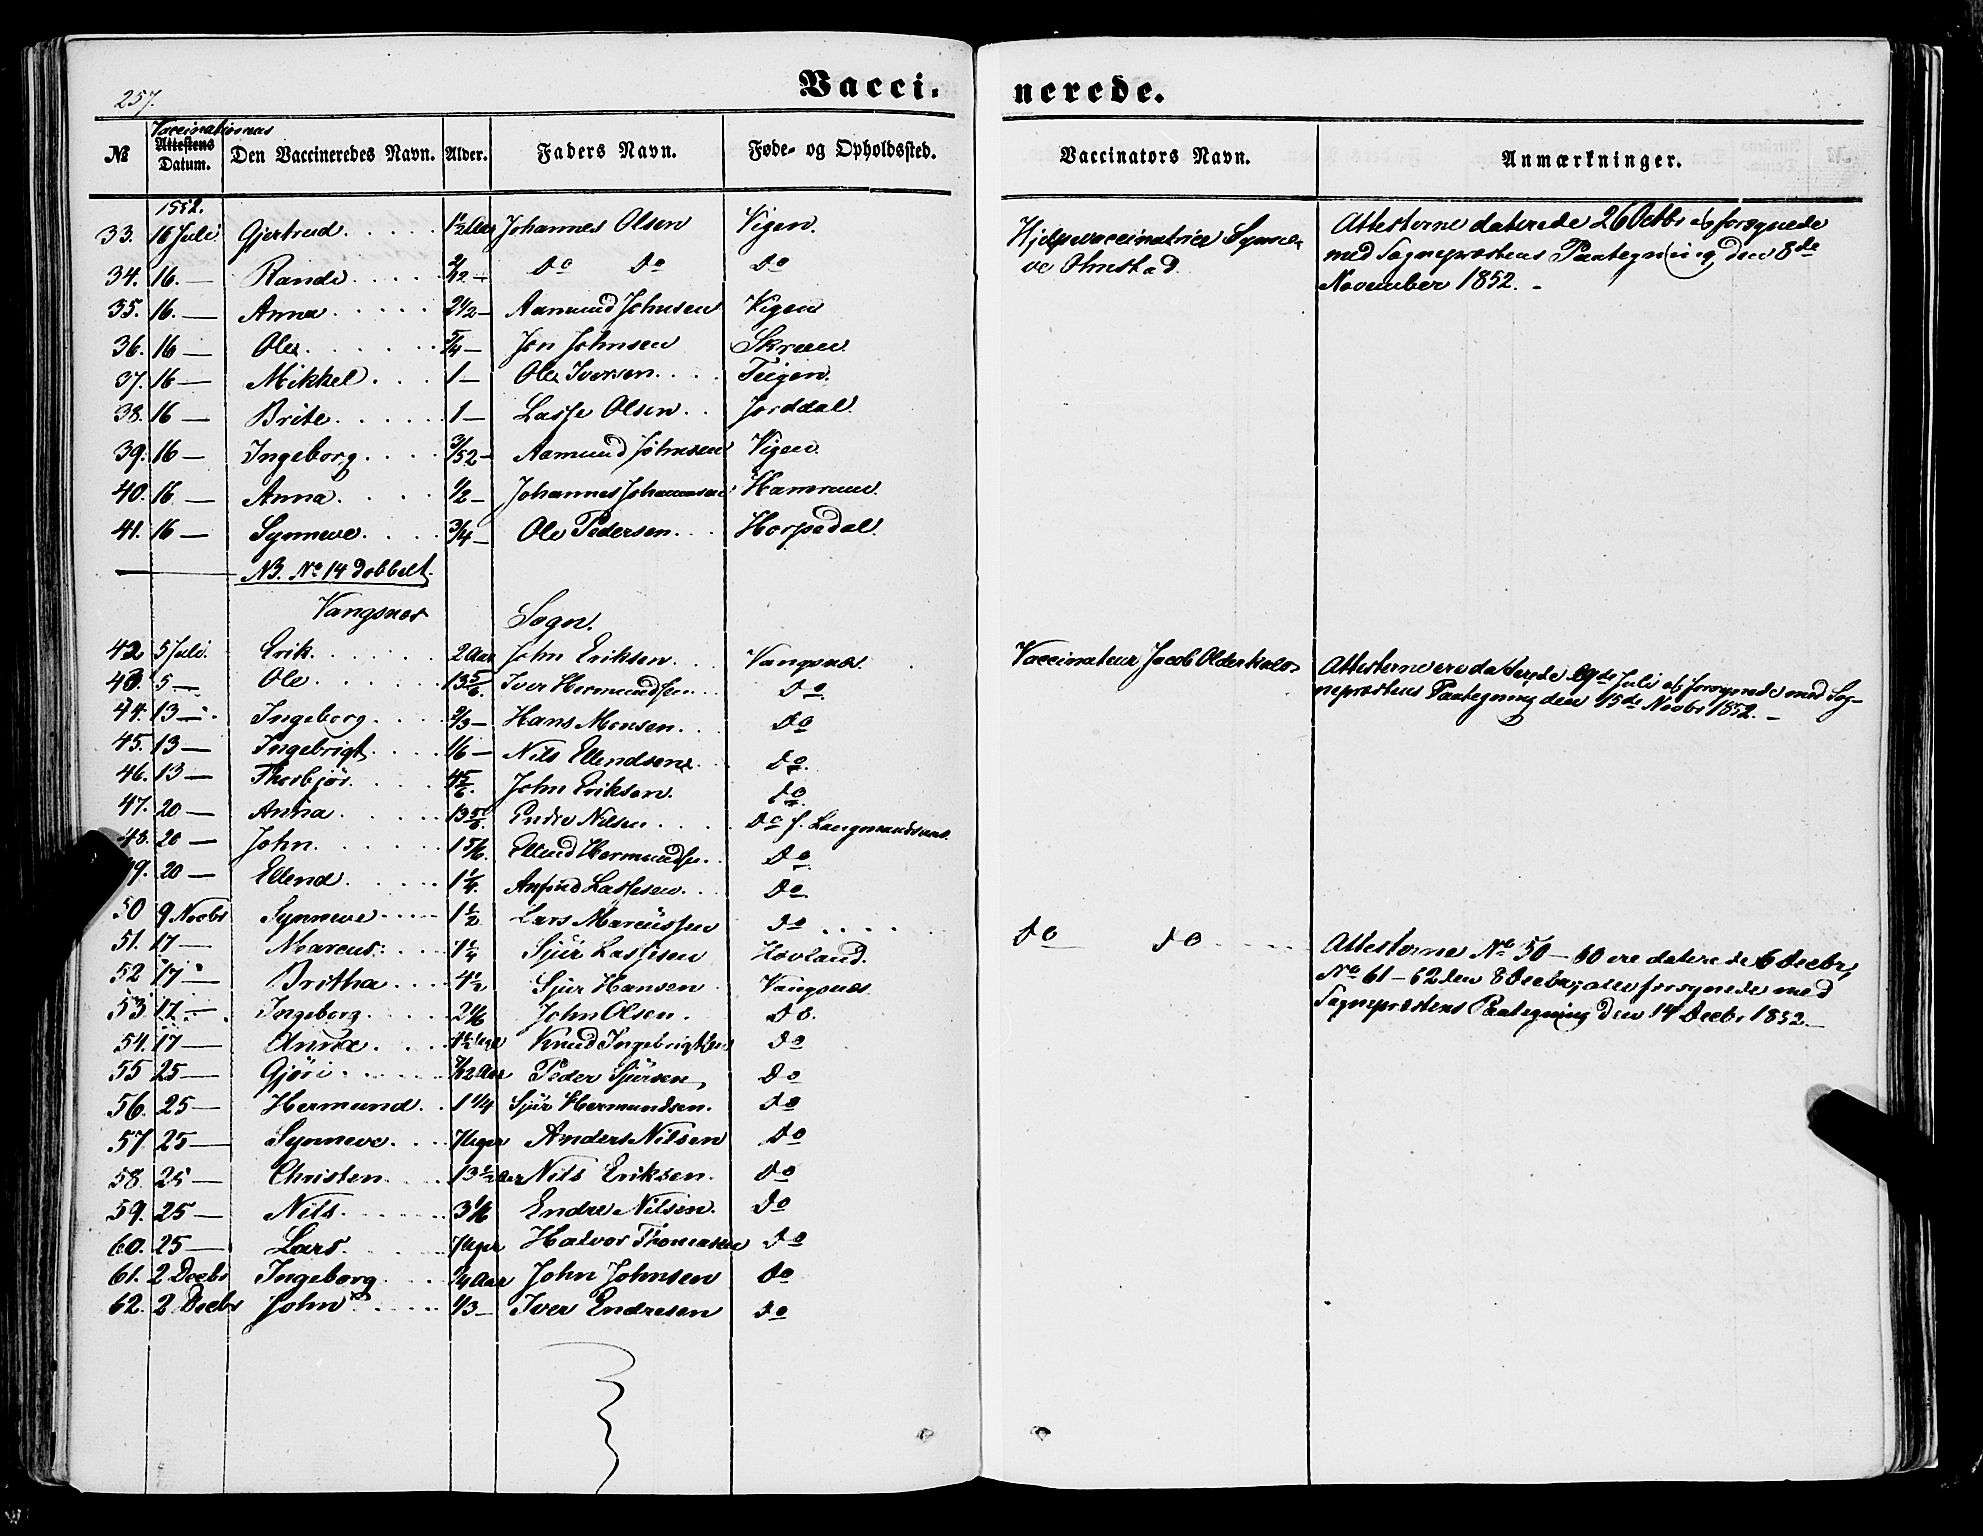 257.
Vacci- nerede.
№ Vaccinations Attestens Datum. Den Vaccineredes Navn. Alder. Faders Navn. Føde- og Opholdssted. Vaccinators Navn. Anmærkninger.
1852.
33. 16 Juli Gjertrud 1½ Aar Johannes Olsen Vigen. Hjelpevaccinatrice Synne-
34. 16. — Randi 2/12 — do do do
35. 16. — Anna 2½ — Aamund Johnsen Vigen
36. 16 — Ole 5/4 — Jon Johnsen
37. 16 — Mikkel 1 — Ole Iversen Teigen.
38. 16 — Brite 1 — Lasse Olsen Jorddal.
39. 16 — Ingeborg 3/52 — Aamund Johnsen Vigen.
40. 16 — Anna ½ — Johannes Johannesen
41. 16 — Synneve ¾ — Ole Pedersen Horpedal.
NB. No 14 dobbelt.
Vangsnes Sogn.
42 5 Juli. Erik 2 Aar John Eriksen Vangsnes
43. 5 — Ole 13 5/6 Iver Hermundsen do
44. 13 — Ingeborg 2/3 — Hans Monsen do
45. 13 — Ingebrigt 1/6 — Nils Ellendsen do
46. 13 — Thorbjør 4 5/6. John Eriksen. do
47. 20 — Anna 13 5/6. Endre Nilsen do
48. 20 — John 1 5/6. Ellend Hermundsen do
49. 20 — Ellend 1¼. Anfind Lassesen do
50 9 Novbr Synneve 1½ Lars Marcussen do
51. 17 — Marcus 1¼ Sjur Lassesen Hovland.
52 17 Britha 4½ Sjur Hansen Vangsnes
53 17 — Ingeborg 2 1/6 John Olsen. do.
54. 17 — Anna 4½ Aar Knud Ingebrigtsen do
55 25 — Gjøri 7/12 Aar Peder Sjursen do
56. 25 — Hermund 1¼ Sjur Hermundsen. do
57. 25 — Synneve 7 Uger Anders Nilsen do
58. 25 — Christen 13½ Aar Nils Eriksen. do
59. 25 — Nils 3 1/6 Endre Nilsen. do
60. 25 — Lars 7 Uger Halvor Thomasen do
61. 2 Decbr Ingeborg ¼ Aar John Johnsen do
62. 2 Decbr John 1/3 — Iver Endresen do
ve Olmstad.
Vaccinateur Jacob
do do
Attesterne daterede 26 Octbr og forsynede
med Sognepræstens Paategning den 8de
November 1852. —
Attesterne ere daterede 29de Juli og forsynede med Sog-
nepræstens Paategning den 15de Novbr 1852. —
Attesterne No 50 — 60 ere daterede 6 Decbr,
No 61 — 62 den 8 Decbr, alle forsynede med
Sognepræstens Paategning den 14 Decbr 1852. —